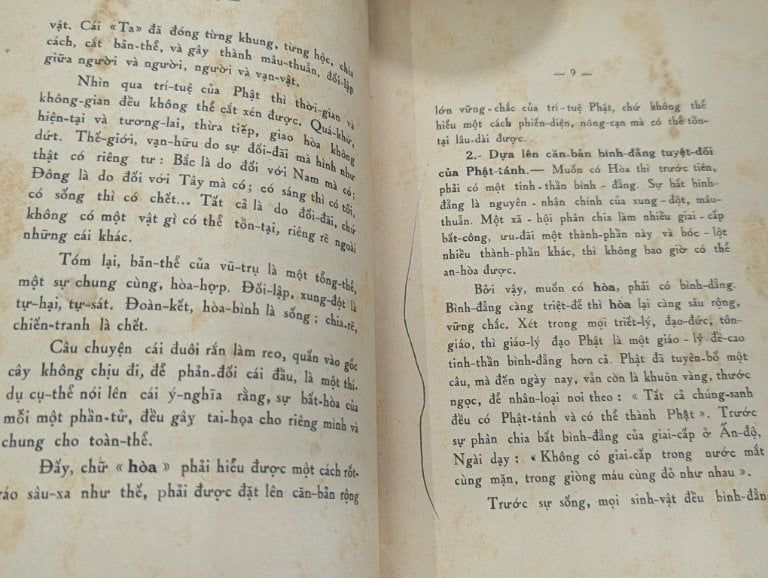 vật. Cái «Ta» đã đóng từng khung, từng hộc, chia
cách, cắt bản-thể, và gây thành mâu-thuẫn, đối-lập
giữa người và người, người và vạn-vật.
Nhìn qua trí-tuệ của Phật thì thời-gian và
không-gian đều không thể cắt xén được. Quá-khứ,
hiện-tại và tương-lai, thừa tiếp, giao hòa không
dứt. Thế-giới, vạn-hữu do sự đối-đãi mà hình như
thật có riêng tư : Bắc là do đối với Nam mà có ;
Đông là do đối với Tây mà có ; có sáng thì có tối,
có sống thì có chết... Tất cả là do đối-đãi, chứ
không có một vật gì có thể tồn-tại, riêng rẽ ngoài
những cái khác.
Tóm lại, bản-thể của vũ-trụ là một tổng-thể,
một sự chung cùng, hòa-hợp. Đối-lập, xung-đột là
tự-hại, tự-sát. Đoàn-kết, hòa-bình là sống ; chia-rẽ,
chiến-tranh là chết.
Câu chuyện cái đuôi rắn làm reo, quấn vào gốc
cây không chịu đi, để phản-đối cái đầu, là một thí-
dụ cụ-thể nói lên cái ý-nghĩa rằng, sự bất-hòa của
mỗi một phần-tử, đều gây tai-họa cho riêng mình và
chung cho toàn-thể.
Đấy, chữ « hòa » phải hiểu được một cách rốt-
ráo sâu-xa như thế, phải được đặt lên căn-bản rộng
— 9 —
lớn vững-chắc của trí-tuệ Phật, chứ không thể
hiểu một cách phiến-diện, nông-cạn mà có thể tồn-
tại lâu-dài được.
2.- Dựa lên căn-bản bình-đẳng tuyệt-đối
của Phật-tánh.— Muốn có Hòa thì trước tiên,
phải có một tinh-thần bình-đẳng. Sự bất bình-
đẳng là nguyên-nhân chính của xung-đột, mâu-
thuẫn. Một xã-hội phân chia làm nhiều giai-cấp
bất-công, ưu-đãi một thành-phần này và bóc-lột
nhiều thành-phần khác, thì không bao giờ có thể
an-hòa được.
Bởi vậy, muốn có hòa, phải có bình-đẳng.
Bình-đẳng càng triệt-để thì hòa lại càng sâu rộng,
vững chắc. Xét trong mọi triết-lý, đạo-đức, tôn-
giáo, thì giáo-lý đạo Phật là một giáo-lý đề-cao
tinh-thần bình-đẳng hơn cả. Phật đã tuyên-bố một
câu, mà đến ngày nay, vẫn còn là khuôn vàng, thước
ngọc, để nhân-loại noi theo : « Tất cả chúng-sanh
đều có Phật-tánh và có thể thành Phật ». Trước
sự phân chia bất bình-đẳng của giai-cấp ở Ấn-độ,
Ngài dạy : « Không có giai-cấp trong nước mắt
cùng mặn, trong giòng máu cùng đỏ như nhau ».
Trước sự sống, mọi sinh-vật đều bình-đẳn